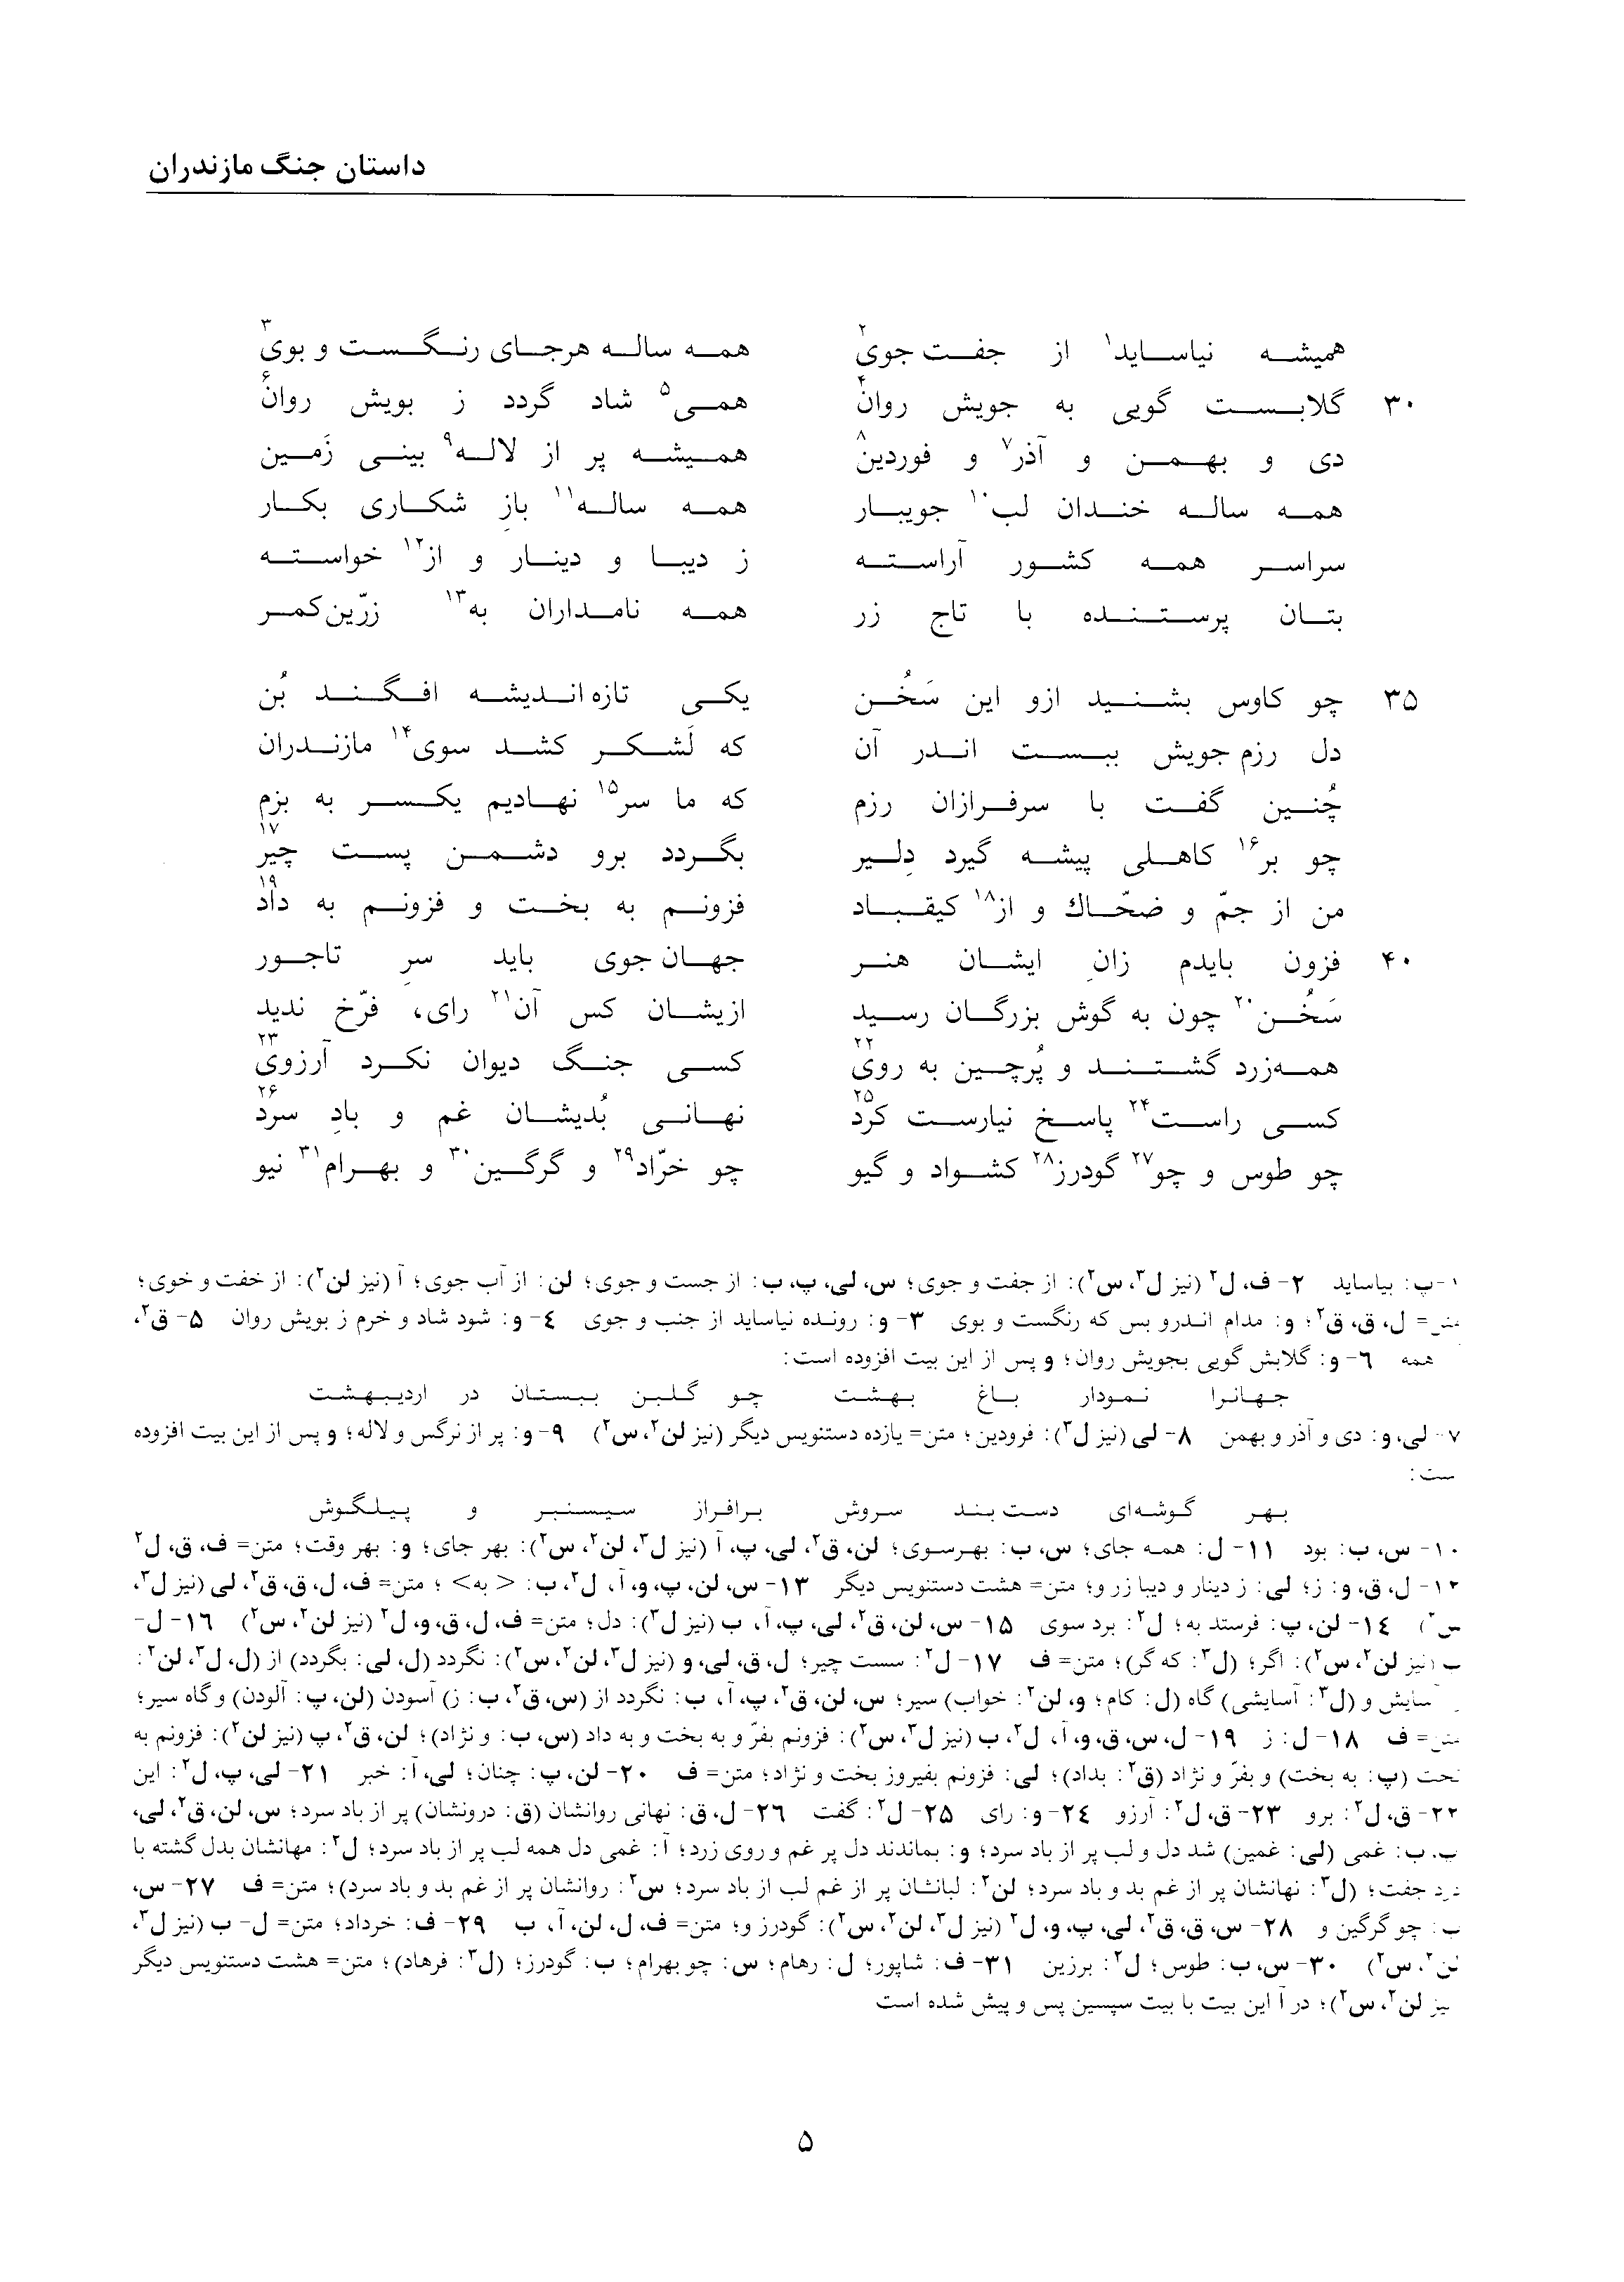 داستان جنگ مازندران
همیشه نیاساید¹ از جفت جوی² همه ساله هرجای رنگست و بوی³
۳۰ گلابست گویی به جویش روان⁴ همی⁵ شاد گردد ز بویش روان⁶
دی و بهمن و آذر⁷ و فوردین⁸ همیشه پر از لاله⁹ بینی زَمین
همه ساله خندان لب¹⁰ جویبار همه ساله¹¹ بازِ شکاری بکار
سراسر همه کشور آراسته ز دیبا و دینار و از¹² خواسته
بتان پرستنده با تاج زر همه نامداران به¹³ زرّین‌کمر
۳۵ چو کاوس بشنید ازو این سَخُن یکی تازه‌اندیشه افگند بُن
دل رزم‌جویش ببست اندر آن که لَشکر کشد سوی¹⁴ مازندران
چُنین گفت با سرفرازان رزم که ما سر¹⁵ نهادیم یکسر به بزم
چو بر¹⁶ کاهلی پیشه گیرد دِلیر بگردد برو دشمن پست چیر¹⁷
من از جمّ و ضحّاك و از¹⁸ کیقباد فزونم به بخت و فزونم به داد¹⁹
۴۰ فزون بایدم زانِ ایشان هنر جهان‌جوی باید سرِ تاجور
سَخُن²⁰ چون به گوش بزرگان رسید ازیشان کس آن²¹ رای، فرّخ ندید
همه‌زرد گشتند و پُرچین به روی²² کسی جنگ دیوان نکرد آرزوی²³
کسی راست²⁴ پاسخ نیارست کرد²⁵ نهانی بُدیشان غم و بادِ سرد²⁶
چو طوس و چو²⁷ گودرز²⁸ کشواد و گیو چو خرّاد²⁹ و گرگین³⁰ و بهرام³¹ نیو
۱-پ: بیاساید ۲- ف، ل۲ (نیز ل۳، س۲): از جفت و جوی؛ س، لی، پ، ب: از جست و جوی؛ لن: از آب جوی؛ آ (نیز لن۲): از خفت و خوی؛
متن= ل، ق، ق۲؛ و: مدام اندرو بس که رنگست و بوی ۳- و: رونده نیاساید از جنب و جوی ٤- و: شود شاد و خرم ز بویش روان ۵- ق۲،
همه ٦- و: گلابش گویی بجویش روان؛ و پس از این بیت افزوده است:
جهانرا نمودار باغ بهشت چو گلبن ببستان در اردیبهشت
۷- لی، و: دی و آذر و بهمن ۸- لی (نیز ل۳): فرودین؛ متن= یازده دستنویس دیگر (نیز لن۲، س۲) ۹- و: پر از نرگس و لاله؛ و پس از این بیت افزوده
ست:
بهر گوشه‌ای دست‌بند سروش برافراز سیسنبر و پیلگوش
۱۰- س، ب: بود ۱۱- ل: همه جای؛ س، ب: بهرسوی؛ لن، ق۲، لی، پ، آ (نیز ل۳، لن۲، س۲): بهر جای؛ و: بهر وقت؛ متن= ف، ق، ل۲
۱۲- ل، ق، و: ز؛ لی: ز دینار و دیبا زر و؛ متن= هشت دستنویس دیگر ۱۳- س، لن، پ، و، آ، ل۲، ب: < به> ؛ متن= ف، ل، ق، ق۲، لی (نیز ل۳،
س۲) ١٤- لن، پ: فرستد به؛ ل۲: برد سوی ۱۵- س، لن، ق۲، لی، پ، آ، ب (نیز ل۳): دل؛ متن= ف، ل، ق، و، ل۲ (نیز لن۲، س۲) ١٦- ل-
ب (نیز لن۲، س۲): اگر؛ (ل۳: که گر)؛ متن= ف ۱۷- ل۲: سست چیر؛ ل، ق، لی، و (نیز ل۳، لن۲، س۲): نگردد (ل، لی: بگردد) از (ل، ل۳، لن۲:
سایش و (ل۳: آسایشی) گاه (ل: کام؛ و، لن۲: خواب) سیر؛ س، لن، ق۲، پ، آ، ب: نگردد از (س، ق۲، ب: ز) آسودن (لن، پ: آلودن) و گاه سیر؛
متن= ف ۱۸- ل: ز ۱۹- ل، س، ق، و، آ، ل۲، ب (نیز ل۳، س۲): فزونم بفرّ و به بخت و به داد (س، ب: و نژاد)؛ لن، ق۲، پ (نیز لن۲): فزونم به
تخت (پ: به بخت) و بفرّ و نژاد (ق۲: بداد)؛ لی: فزونم بفیروز بخت و نژاد؛ متن= ف ۲۰- لن، پ: چنان؛ لی، آ: خبر ۲۱- لی، پ، ل۲: این
۲۲- ق، ل۲: برو ۲۳- ق، ل۲: آرزو ٢٤- و: رای ۲۵- ل۲: گفت ٢٦- ل، ق: نهانی روانشان (ق: درونشان) پر از باد سرد؛ س، لن، ق۲، لی،
پ، ب: غمی (لی: غمین) شد دل و لب پر از باد سرد؛ و: بماندند دل پر غم و روی زرد؛ آ: غمی دل همه لب پر از باد سرد؛ ل۲: مهانشان بدل گشته با
درد جفت؛ (ل۳: نهانشان پر از غم بد و باد سرد؛ لن۲: لبانشان پر از غم لب از باد سرد؛ س۲: روانشان پر از غم بد و باد سرد)؛ متن= ف ۲۷- س،
ب: چو گرگین و ۲۸- س، ق، ق۲، لی، پ، و، ل۲ (نیز ل۳، لن۲، س۲): گودرز و؛ متن= ف، ل، لن، آ، ب ۲۹- ف: خرداد؛ متن= ل- ب (نیز ل۳،
لن۲، س۲) ۳۰- س، ب: طوس؛ ل۲: برزین ۳۱- ف: شاپور؛ ل: رهام؛ س: چو بهرام؛ ب: گودرز؛ (ل۳: فرهاد)؛ متن= هشت دستنویس دیگر
نیز لن۲، س۲)؛ در آ این بیت با بیت سپسین پس و پیش شده است
۵